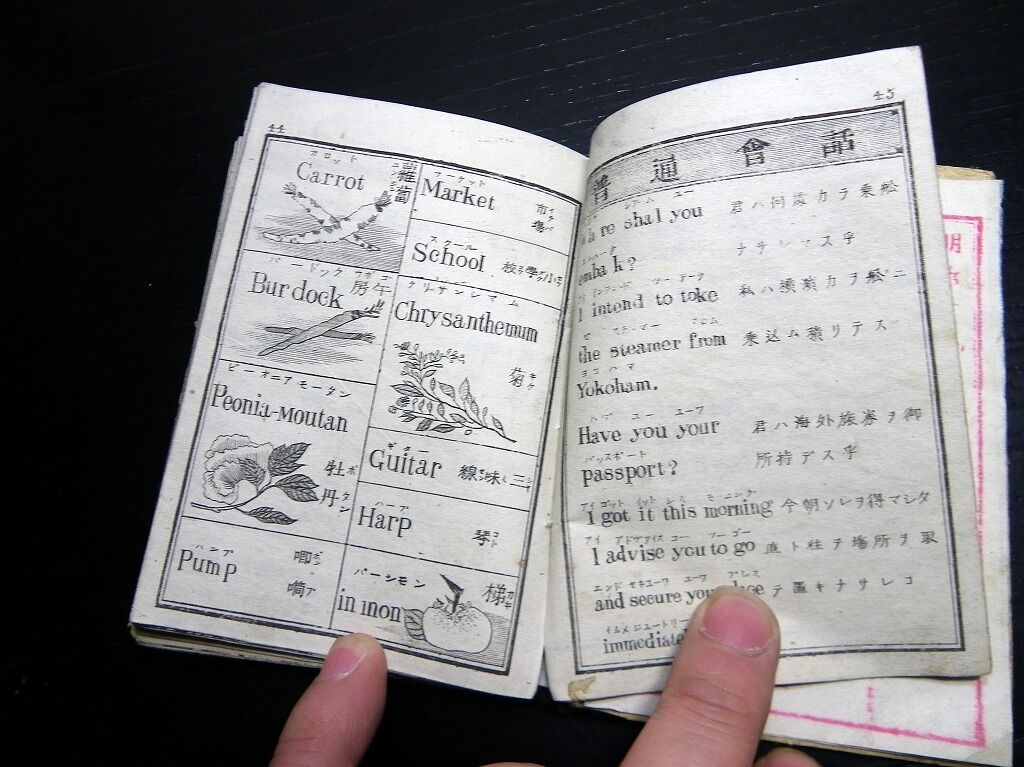 44
カロット
Carrot
ニンジン
蘿蔔
マーケット
Market
市場
イチバ
スクール
School
小学校
バードック
Burdock
午房
ウボゴ
クリサンシマム
Chrysanthemum
菊
キク
ピーオニア モータン
Peonia-Moutan
牡丹
ボタン
ギター
Guitar
三味線
ハープ
Harp
琴
コト
パンプ
Pump
喞
パーシモン
in mon
45
普通會話
re shal you
君ハ何處カラ乗舩
emba k?
ナサシマス乎
I intend to toke
私ハ横濱カヲ舩ニ
the steamer from
乗込ム積リテス
ヨコハマ
Yokoham.
ハブ ユー ユーワ
Have you your
君ハ海外旅券ヲ御
パッスポート
passport?
所持デス乎
アイ ゴット イット シス モーニング
I got it this morning
今朝ソレヲ得マシタ
アイ アドヴァイス ユー ツー ゴー
I advise you to go
直ト往テ場所ヲ取
エンド セキユーワ ユーワ プレス
and secure your
テ置キナサレコ
イムメジエートリー
immediatel
明